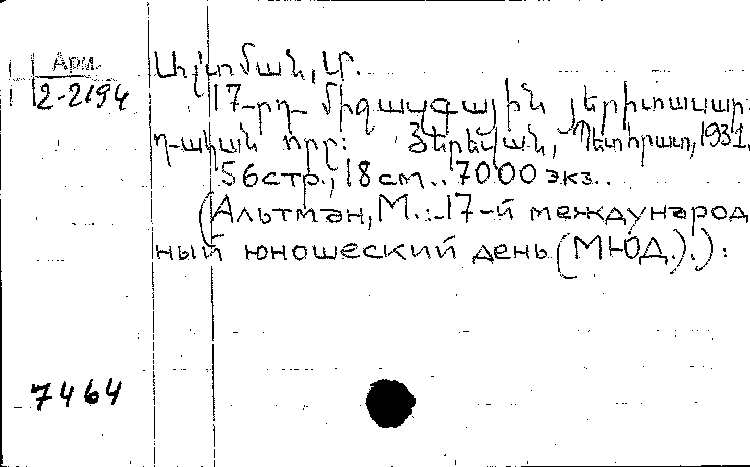 Арм.
2-2194
Ալտման, Մ.
17-րդ միջազգային յերիտասար-
դական որը: Յերևան, Պետհրատ, 1931.
56 стр., 18 см.. 7000 экз..
(Альтман, М.:.17-й международ
ный юношеский день (МЮД.).):
7464